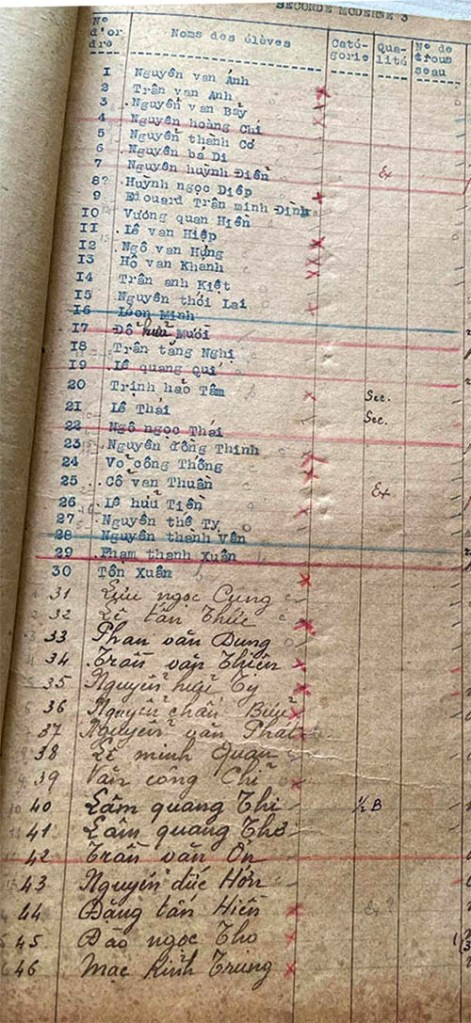 SECONDE MODERNE 3
N° d'or dre Noms des élèves Caté- gorie Qua- lité N° de trous seau
1 Nguyễn van Ánh
2 Trần van Anh
3 Nguyễn van Bảy
4 Nguyễn hoàng Chí
5 Nguyễn thành Cơ
6 Nguyễn bá Di
7 Nguyễn huỳnh Điền Ex
8? Huỳnh ngọc Diệp
9 Edouard Trần minh Định
10 Vương quan Hiền
11 Lê van Hiệp
12 Ngô van Hưng
13 Hồ van Khánh
14 Trần anh Kiệt
15 Nguyễn thới Lai
16 Loon Minh
17 Đỗ hữu Mười
18 Trần tăng Nghị
19 Lê quang Quí
20 Trịnh hảo Tâm Sec.
21 Lê Thái Sec.
22 Ngô ngọc Thái
23 Nguyễn đồng Thinh
24 Võ công Thống
25 Cổ van Thuần Ex
26 Lê hữu Tiền
27 Nguyễn thế Tỵ
28 Nguyễn thành Vân
29 Pham thanh Xuân
30 Tôn Xuân
31 Lưu ngọc Cung
32 Lê tấn Thức
33 Phan văn Dung
34 Trần văn Thiên
35 Nguyễn Tỵ
36 Nguyễn chấn Bửu
37 Nguyễn văn Phát
38 Lê minh Quan
39 Văn công Chi
40 Lâm quang Thi ½ B
41 Lâm quang Thơ
42 Trần văn Ơn
43 Nguyễn đức Hớn
44 Đặng tấn Hiền Ex ?
45 Đào ngọc Thọ
46 Mạc Kỉnh Trung